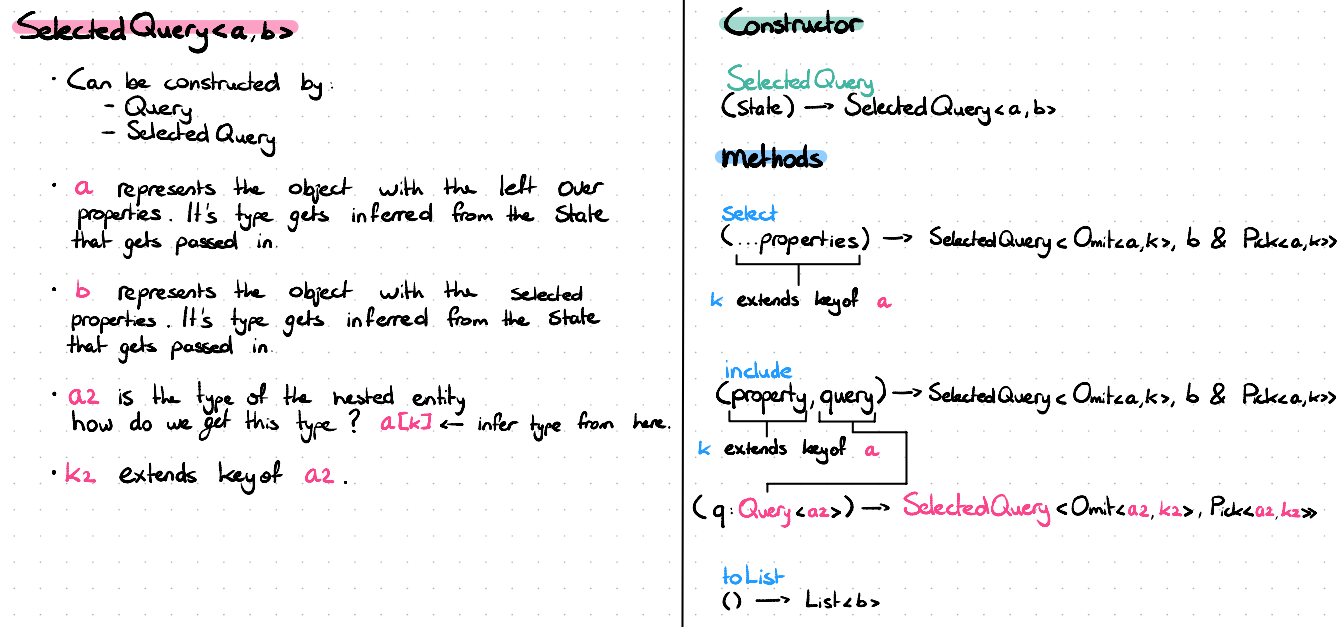 SelectedQuery<a,b>
· Can be constructed by:
- Query
- SelectedQuery
· a represents the object with the left over
properties. It's type gets inferred from the State
that gets passed in.
· b represents the object with the selected
properties. It's type gets inferred from the State
that gets passed in.
· a2 is the type of the nested entity
how do we get this type? a[k] ← infer type from here.
· k2 extends keyof a2.
Constructor
SelectedQuery
(State) → SelectedQuery<a,b>
Methods
Select
(...properties) → SelectedQuery<Omit<a,k>, b & Pick<a,k>>
k extends keyof a
include
(property, query) → SelectedQuery<Omit<a,k>, b & Pick<a,k>>
k extends keyof a
(q: Query<a2>) → SelectedQuery<Omit<a2,k2>, Pick<a2,k2>>
toList
() → List<b>